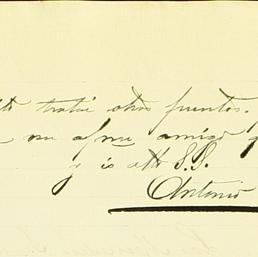 tratar otros puntos.
su afmo amigo q
y s. atto S.S.
Antonio